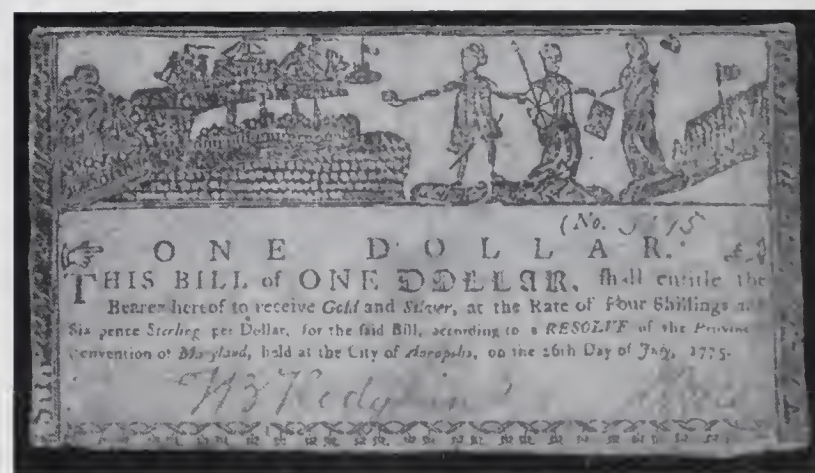 (No.
ONE DOLLAR.
THIS BILL of ONE DOLLAR, shall entitle the
Bearer hereof to receive Gold and Silver, at the Rate of Four Shillings and
Six pence Sterling per Dollar, for the said Bill, according to a RESOLVE of the Provincial
Convention of Maryland, held at the City of Annapolis, on the 26th Day of July, 1775.